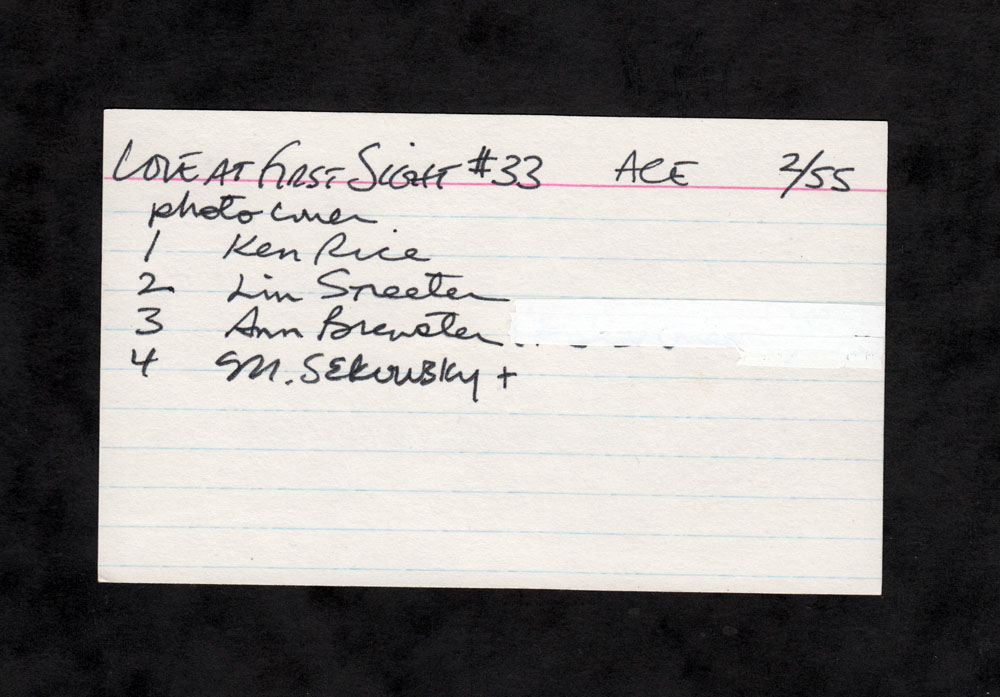 LOVE AT FIRST SIGHT #33 ACE 2/55
photo cover
1 Ken Rice
2 Lin Streeter
3 Ann Brewster
4 M. SEKOWSKY +